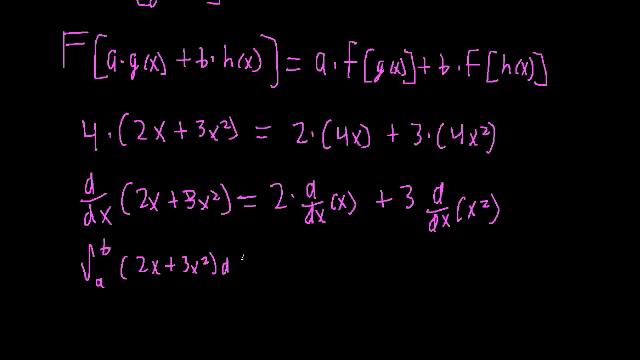 F[a·g(x) + b·h(x)] = a·F[g(x)] + b·F[h(x)]
4·(2x + 3x²) = 2·(4x) + 3·(4x²)
d/dx (2x + 3x²) = 2·d/dx (x) + 3 d/dx (x²)
∫_a^b (2x + 3x²) d